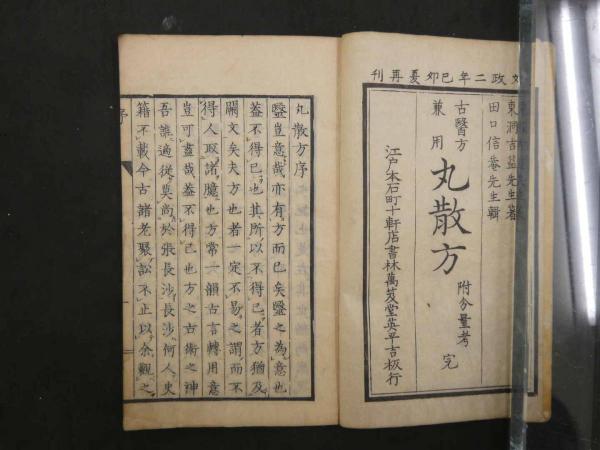 文政二年己卯夏再刊
東洞吉益先生著
田口信菴先生輯
古醫方
兼用
丸散方
附分量考
完
江戸本石町十軒店書林萬笈堂英平吉板行
丸散方序
醫豈意哉亦有方而已矣醫之為意也
蓋不得已也其所以不得已者方猶及
闕文矣夫方也者一定不易之謂而不
得人取諸臆也方常一韻古言轉用意
豈可盡哉蓋不得已也方之古術之神
吾誰適從莫尚於張長沙長沙何人史
籍不載今古諸老聚訟不正以余觀之
序